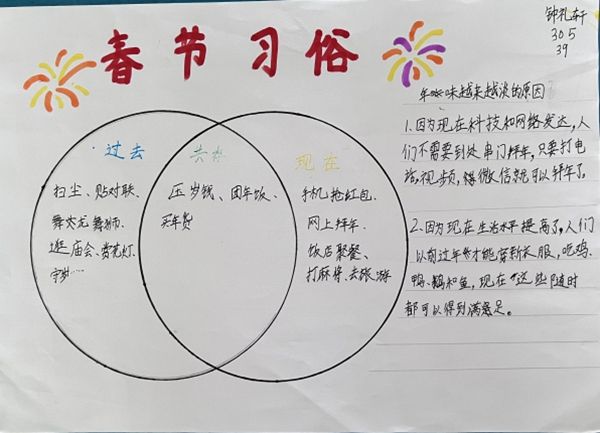 春节习俗
钟礼轩
305
39
过去
扫尘、贴对联、
舞龙、舞狮、
逛庙会、赏花灯、
守岁……
共有
压岁钱、团年饭、
买年货
现在
手机抢红包、
网上拜年、
饭店聚餐、
打麻将、去旅游
年味越来越淡的原因
1.因为现在科技和网络发达,人
们不需要到处串门拜年,只要打电
话,视频,微信就可以拜年了。
2、因为现在生活水平提高了,人们
以前过年才能穿新衣服,吃鸡、
鸭、鹅和鱼,现在这些随时
都可以得到满足。